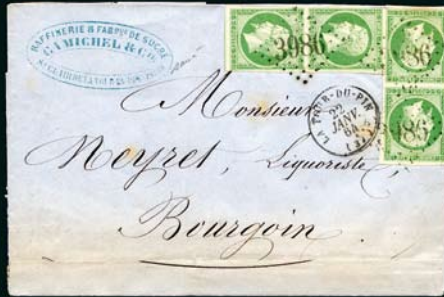 RAFFINERIE & FABRQUE DE SUCRE
C. AMICHEL & Co.
3986
986
986
LA TOUR-DU-PIN
22
JANV.
64
Monsieur
Neyret, Liquoriste,
Bourgoin